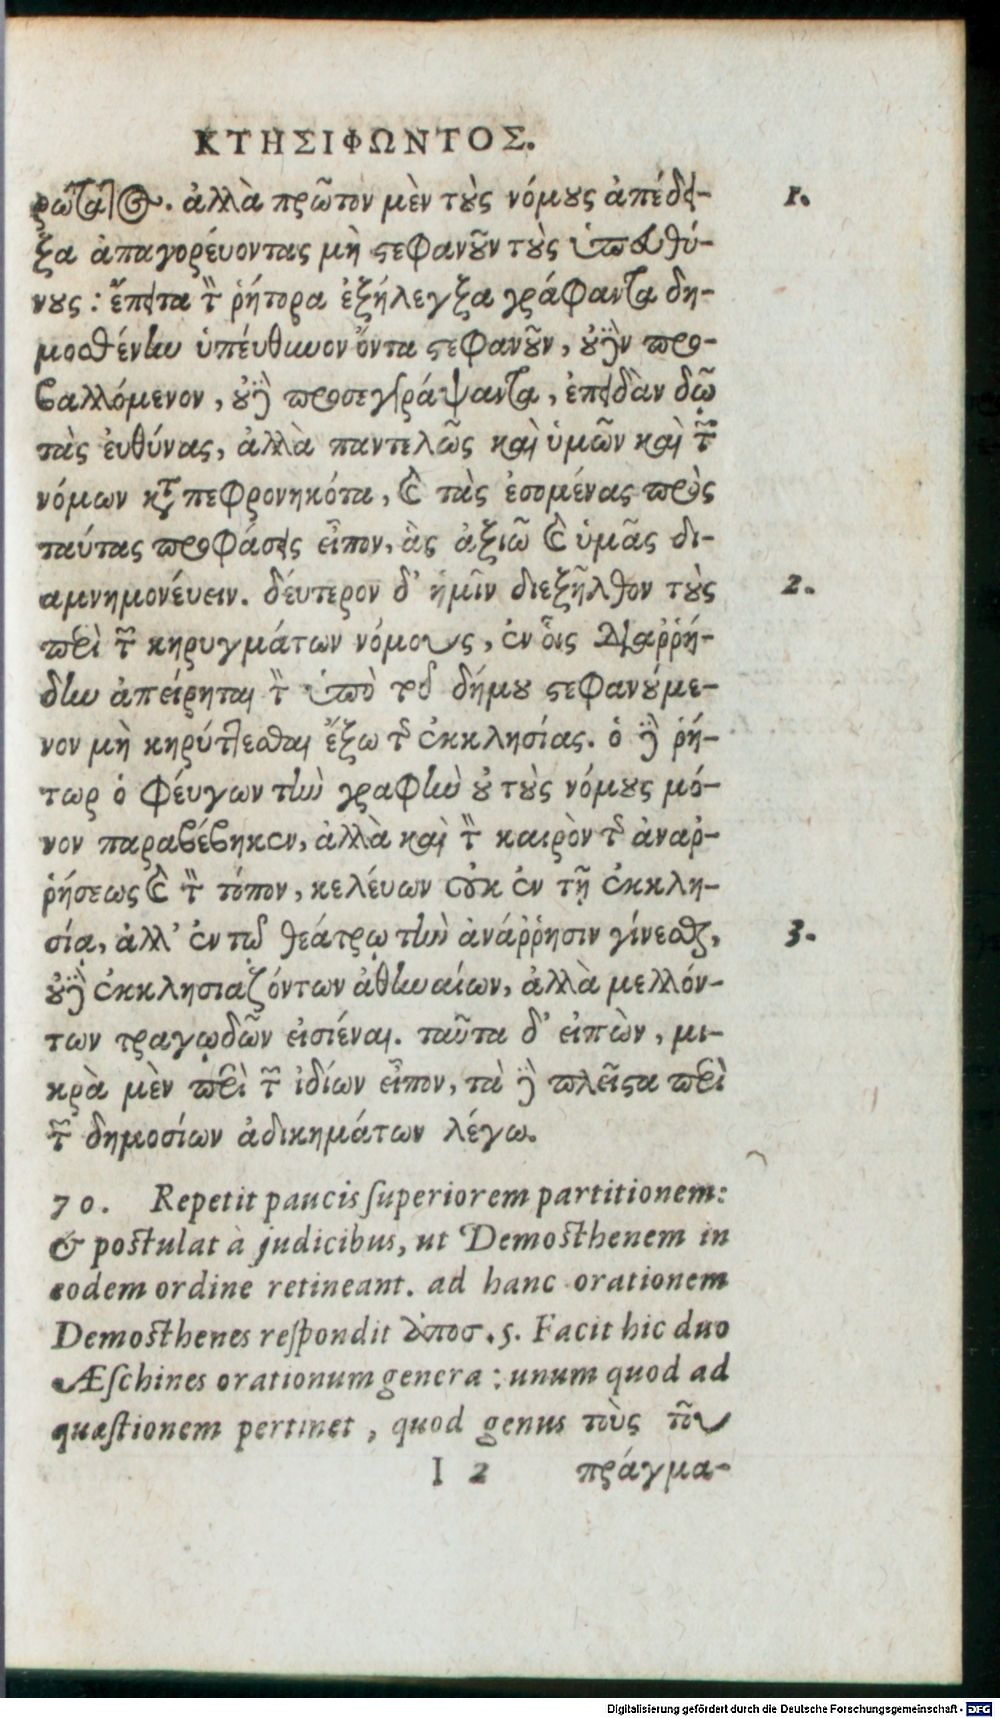 ΚΤΗΣΙΦΩΝΤΟΣ.
ρώτατος. ἀλλὰ πρῶτον μὲν τοὺς νόμους ἀπέδει- 1.
ξα ἀπαγορεύοντας μὴ στεφανοῦν τοὺς ὑπευθύ-
νους: ἔπειτα τὸν ῥήτορα ἐξήλεγξα γράφαντα δη-
μοσθένην ὑπεύθυνον ὄντα στεφανοῦν, οὐδὲν προ-
βαλλόμενον, οὐδὲ προσεγγράψαντα, ἐπειδὰν δῷ
τὰς εὐθύνας, ἀλλὰ παντελῶς καὶ ὑμῶν καὶ τῶν
νόμων καταπεφρονηκότα, καὶ τὰς ἐσομένας πρὸς
ταύτας προφάσεις εἶπον, ἃς ἀξιῶ καὶ ὑμᾶς δι-
αμνημονέυειν. δέυτερον δ' ἡμῖν διεξῆλθον τοὺς 2.
περὶ τῶν κηρυγμάτων νόμους, ἐν οἷς διαῤῥή-
δην ἀπείρηται τὸν ὑπὸ τοῦ δήμου στεφανουμε-
νον μὴ κηρύττεσθαι ἔξω τῆς ἐκκλησίας. ὁ δὲ ῥή-
τωρ ὁ φέυγων τὴν γραφὴν οὐ τοὺς νόμους μό-
νον παραβέβηκεν, ἀλλὰ καὶ τὸν καιρὸν τῆς ἀναῤ-
ῥήσεως καὶ τὸν τόπον, κελέυων οὐκ ἐν τῇ ἐκκλη-
σίᾳ, ἀλλ' ἐν τῷ θεάτρῳ τὴν ἀνάῤῥησιν γίνεσθαι, 3.
οὐδὲ ἐκκλησιαζόντων ἀθηναίων, ἀλλὰ μελλόν-
των τραγῳδῶν εἰσιέναι. ταῦτα δ' εἰπὼν, μι-
κρὰ μὲν περὶ τῶν ἰδίων εἶπον, τὰ δὲ πλεῖστα περὶ
τῶν δημοσίων ἀδικημάτων λέγω.
70. Repetit paucis superiorem partitionem:
& postulat à judicibus, ut Demosthenem in
eodem ordine retineant. ad hanc orationem
Demosthenes respondit . 5. Facit hic duo
Æschines orationum genera: unum quod ad
quæstionem pertinet, quod genus τοὺς
I 2 πράγμα-
Digitalisierung gefördert durch die Deutsche Forschungsgemeinschaft - DFG